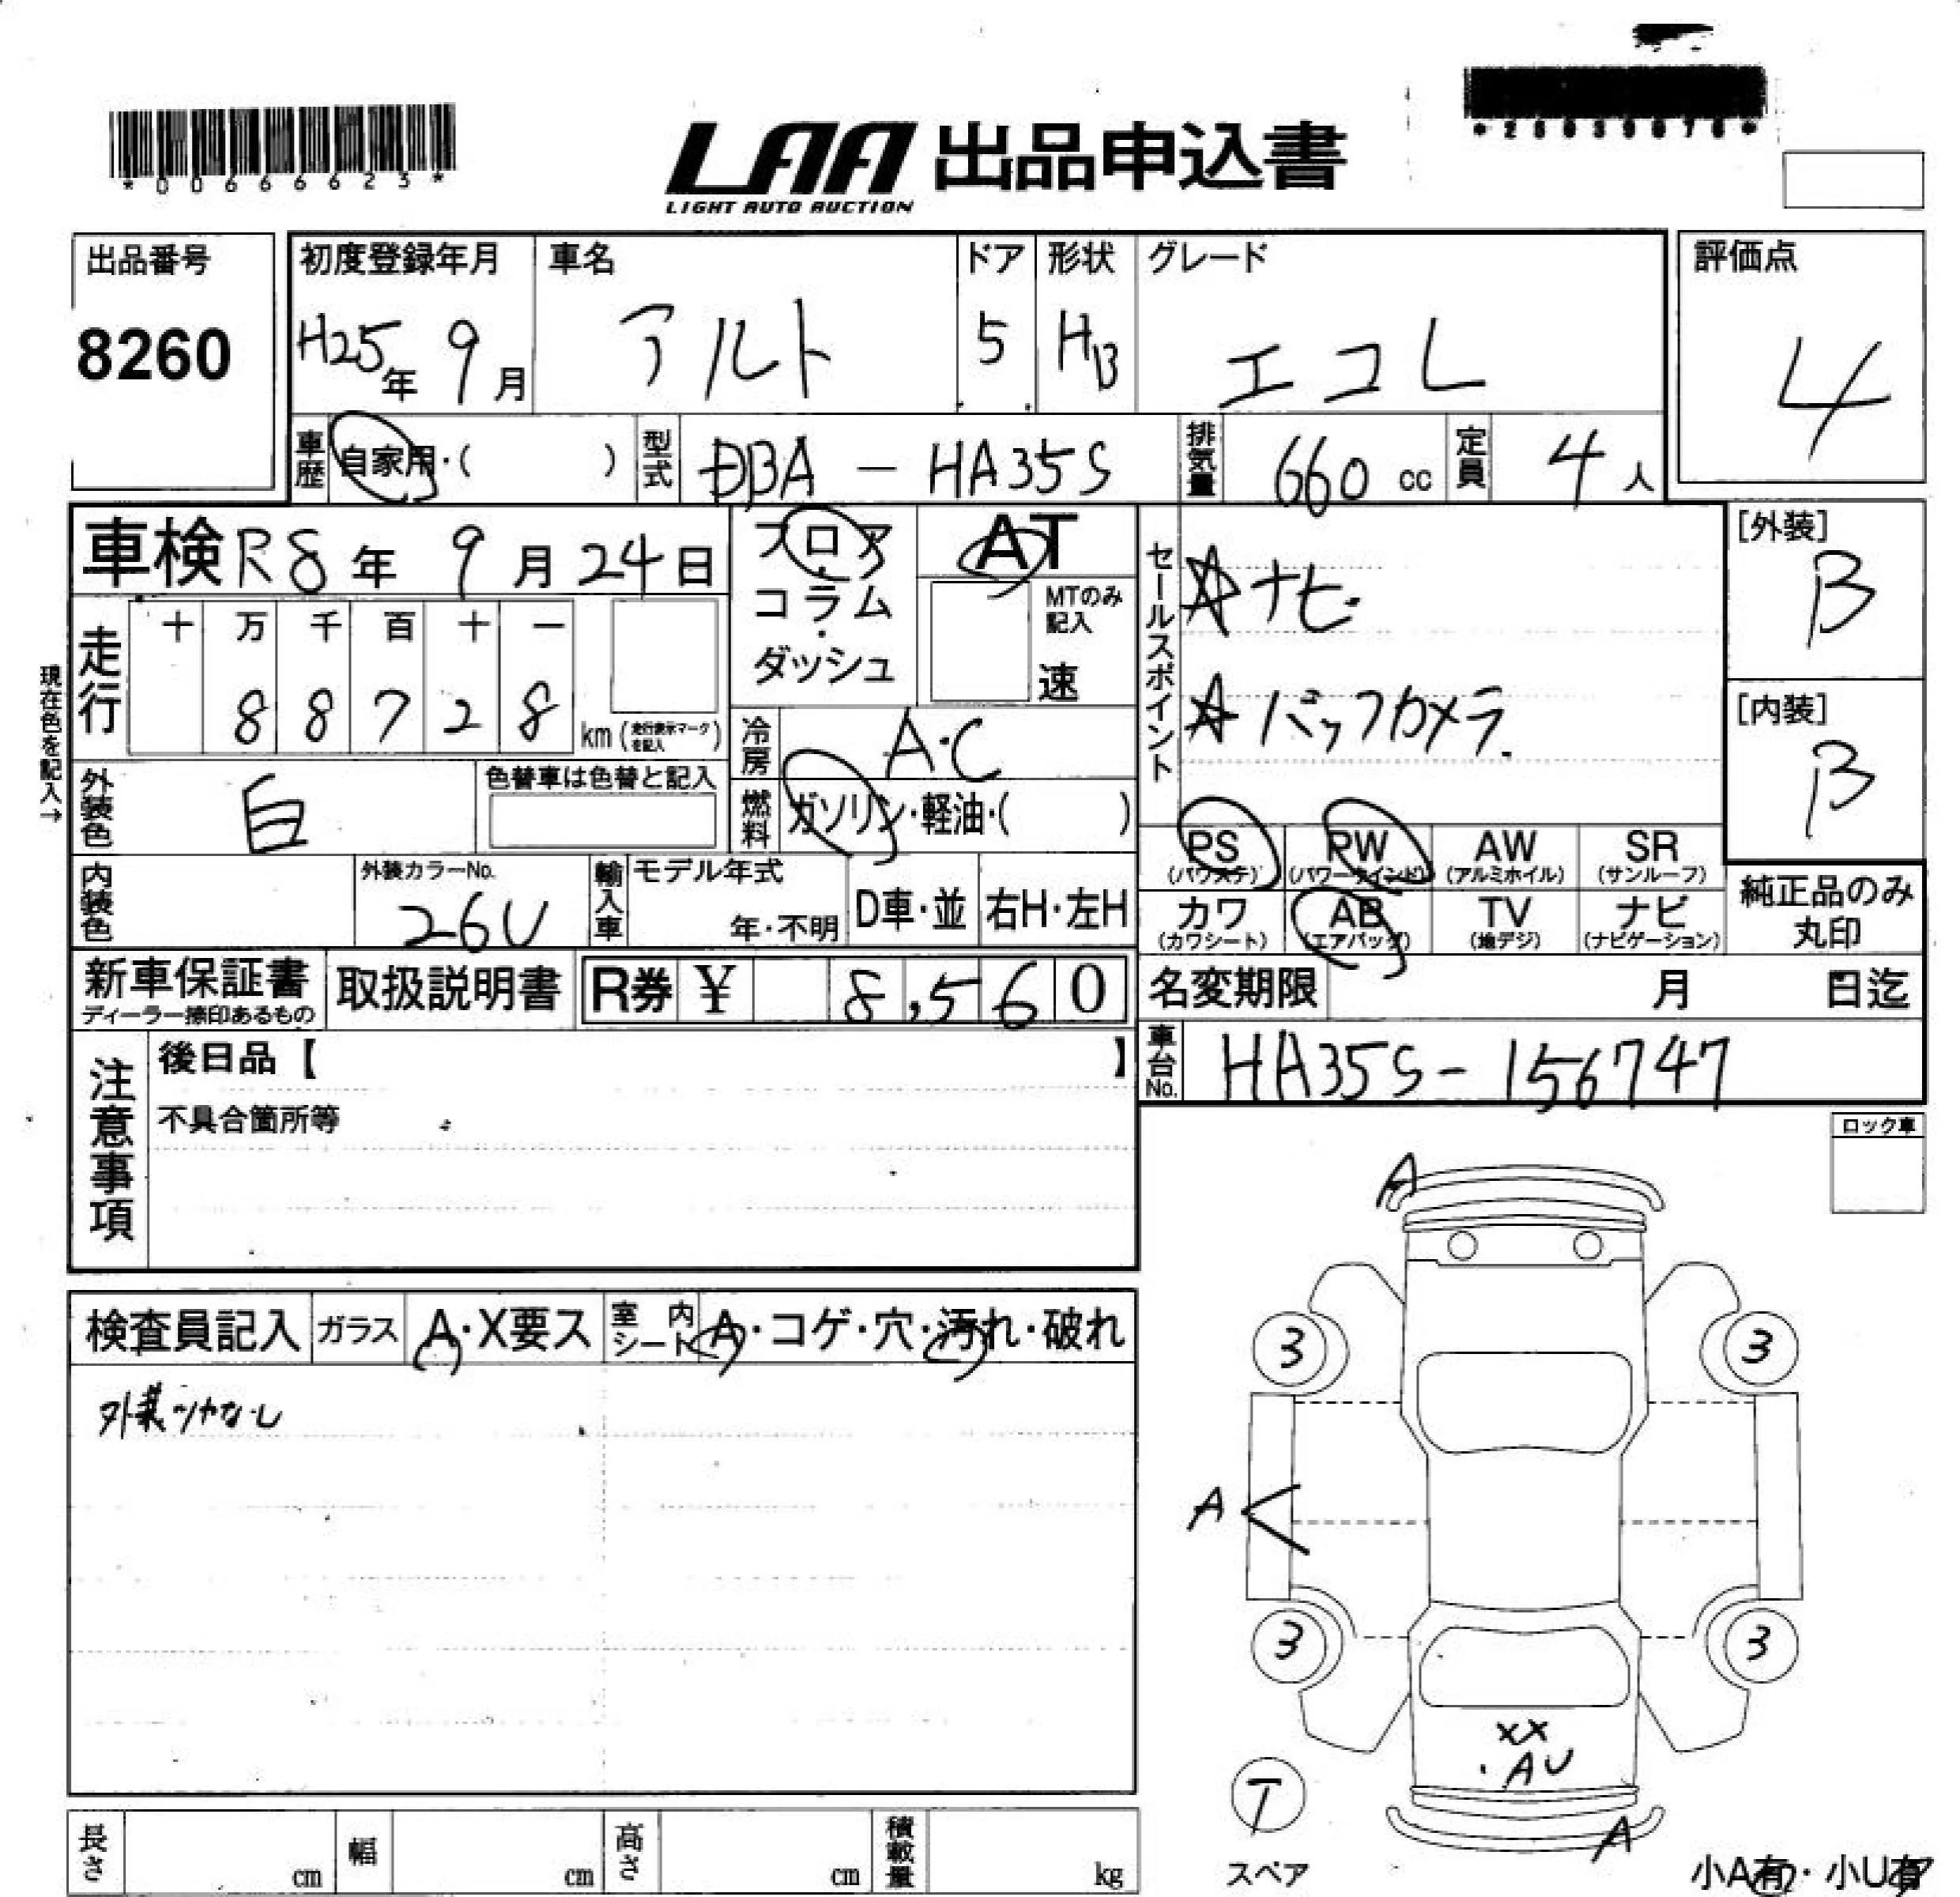 *00666623*
LAA 出品申込書
LIGHT AUTO AUCTION
出品番号
8260
初度登録年月
H25年 9月
車名
アルト
ドア
5
形状
HB
グレード
エコL
評価点
4
車歴 自家用・( )
型式 DBA - HA35S
排気量 660 cc
定員 4人
車検 R8年 9月 24日
フロア・コラム・ダッシュ
AT
MTのみ記入
速
セールスポイント
☆ナビ
☆バックカメラ
[外装]
B
[内装]
B
現在色を記入→
走行
十 万 千 百 十 一
8 8 7 2 8 km (走行表示マークを記入)
冷房 A・C
外装色 白
色替車は色替と記入
燃料 ガソリン・軽油・( )
内装色
外装カラーNo.
26U
輸入車
モデル年式
年・不明
D車・並
右H・左H
PS (パワステ)
PW (パワーウインド)
AW (アルミホイル)
SR (サンルーフ)
カワ (カワシート)
AB (エアバッグ)
TV (地デジ)
ナビ (ナビゲーション)
純正品のみ丸印
新車保証書
ディーラー捺印あるもの
取扱説明書
R券 ¥ 8,560
名変期限 月 日迄
車台No. HA35S-156747
注意事項
後日品【 】
不具合箇所等
ロック車
検査員記入
ガラス A・X要ス
室内シート A・コゲ・穴・汚れ・破れ
外装ツヤなし
A
3
3
A
3
3
XX
AU
T
スペア
A
小A有・小U有
長さ cm
幅 cm
高さ cm
積載量 kg